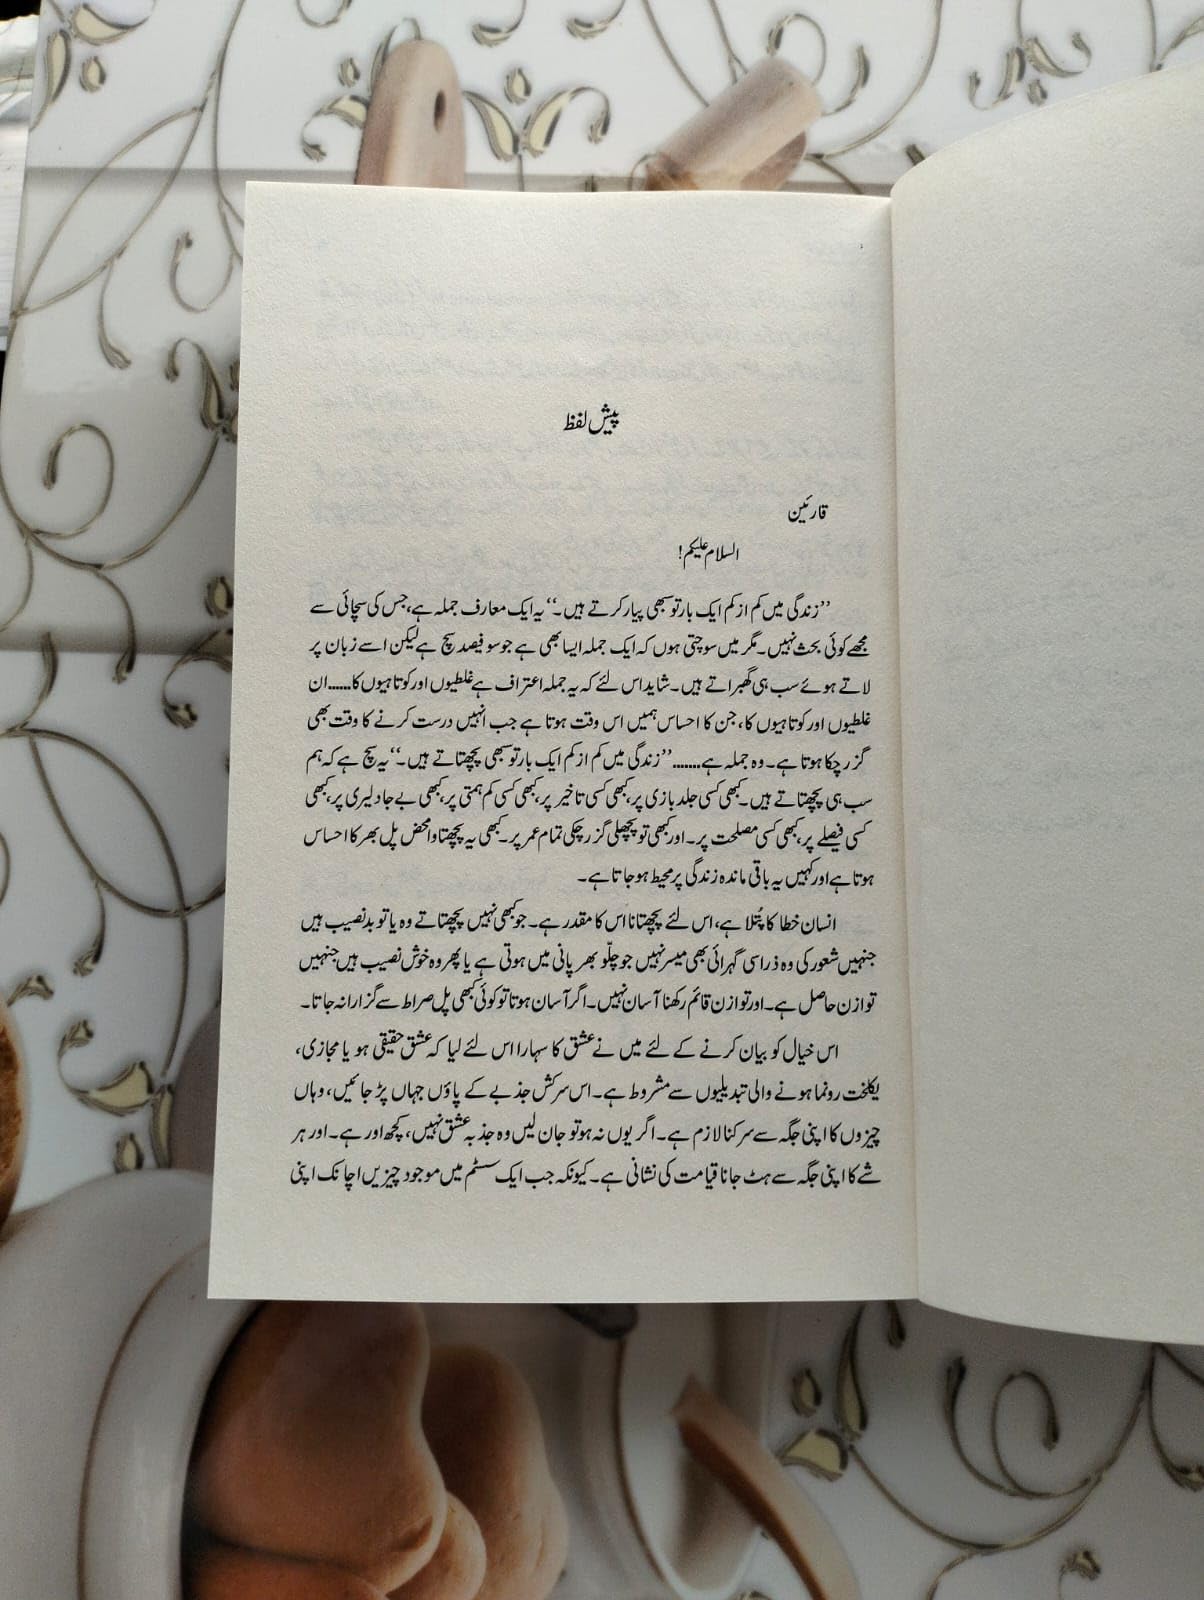 پیش لفظ
قارئین
السلام علیکم!
’’زندگی میں کم از کم ایک بار تو سبھی پیار کرتے ہیں۔‘‘ یہ ایک معارف جملہ ہے، جس کی سچائی سے
مجھے کوئی بحث نہیں۔ مگر میں سوچتی ہوں کہ ایک جملہ ایسا بھی ہے جو سو فیصد سچ ہے لیکن اسے زبان پر
لاتے ہوئے سب ہی گھبراتے ہیں۔ شاید اس لئے کہ یہ جملہ اعتراف ہے غلطیوں اور کوتاہیوں کا...... ان
غلطیوں اور کوتاہیوں کا، جن کا احساس ہمیں اس وقت ہوتا ہے جب انہیں درست کرنے کا وقت بھی
گزر چکا ہوتا ہے۔ وہ جملہ ہے....... ’’زندگی میں کم از کم ایک بار تو سبھی پچھتاتے ہیں۔‘‘ یہ سچ ہے کہ ہم
سب ہی پچھتاتے ہیں۔ کبھی کسی جلد بازی پر، کبھی کسی تاخیر پر، کبھی کسی کم ہمتی پر، کبھی بے جا دلیری پر، کبھی
کسی فیصلے پر، کبھی کسی مصلحت پر۔ اور کبھی تو پچھلی گزر چکی تمام عمر پر۔ کبھی یہ پچھتاوا محض پل بھر کا احساس
ہوتا ہے اور کہیں یہ باقی ماندہ زندگی پر محیط ہو جاتا ہے۔
انسان خطا کا پُتلا ہے، اس لئے پچھتانا اس کا مقدر ہے۔ جو کبھی نہیں پچھتاتے وہ یا تو بدنصیب ہیں
جنہیں شعور کی وہ ذرا سی گہرائی بھی میسر نہیں جو چلّو بھر پانی میں ہوتی ہے یا پھر وہ خوش نصیب ہیں جنہیں
توازن حاصل ہے۔ اور توازن قائم رکھنا آسان نہیں۔ اگر آسان ہوتا تو کوئی کبھی پل صراط سے گزارا نہ جاتا۔
اس خیال کو بیان کرنے کے لئے میں نے عشق کا سہارا اس لئے لیا کہ عشق حقیقی ہو یا مجازی،
یکلخت رونما ہونے والی تبدیلیوں سے مشروط ہے۔ اس سرکش جذبے کے پاؤں جہاں پڑ جائیں، وہاں
چیزوں کا اپنی جگہ سے سرکنا لازم ہے۔ اگر یوں نہ ہو تو جان لیں وہ جذبہ عشق نہیں، کچھ اور ہے۔ اور ہر
شے کا اپنی جگہ سے ہٹ جانا قیامت کی نشانی ہے۔ کیونکہ جب ایک سسٹم میں موجود چیزیں اچانک اپنی